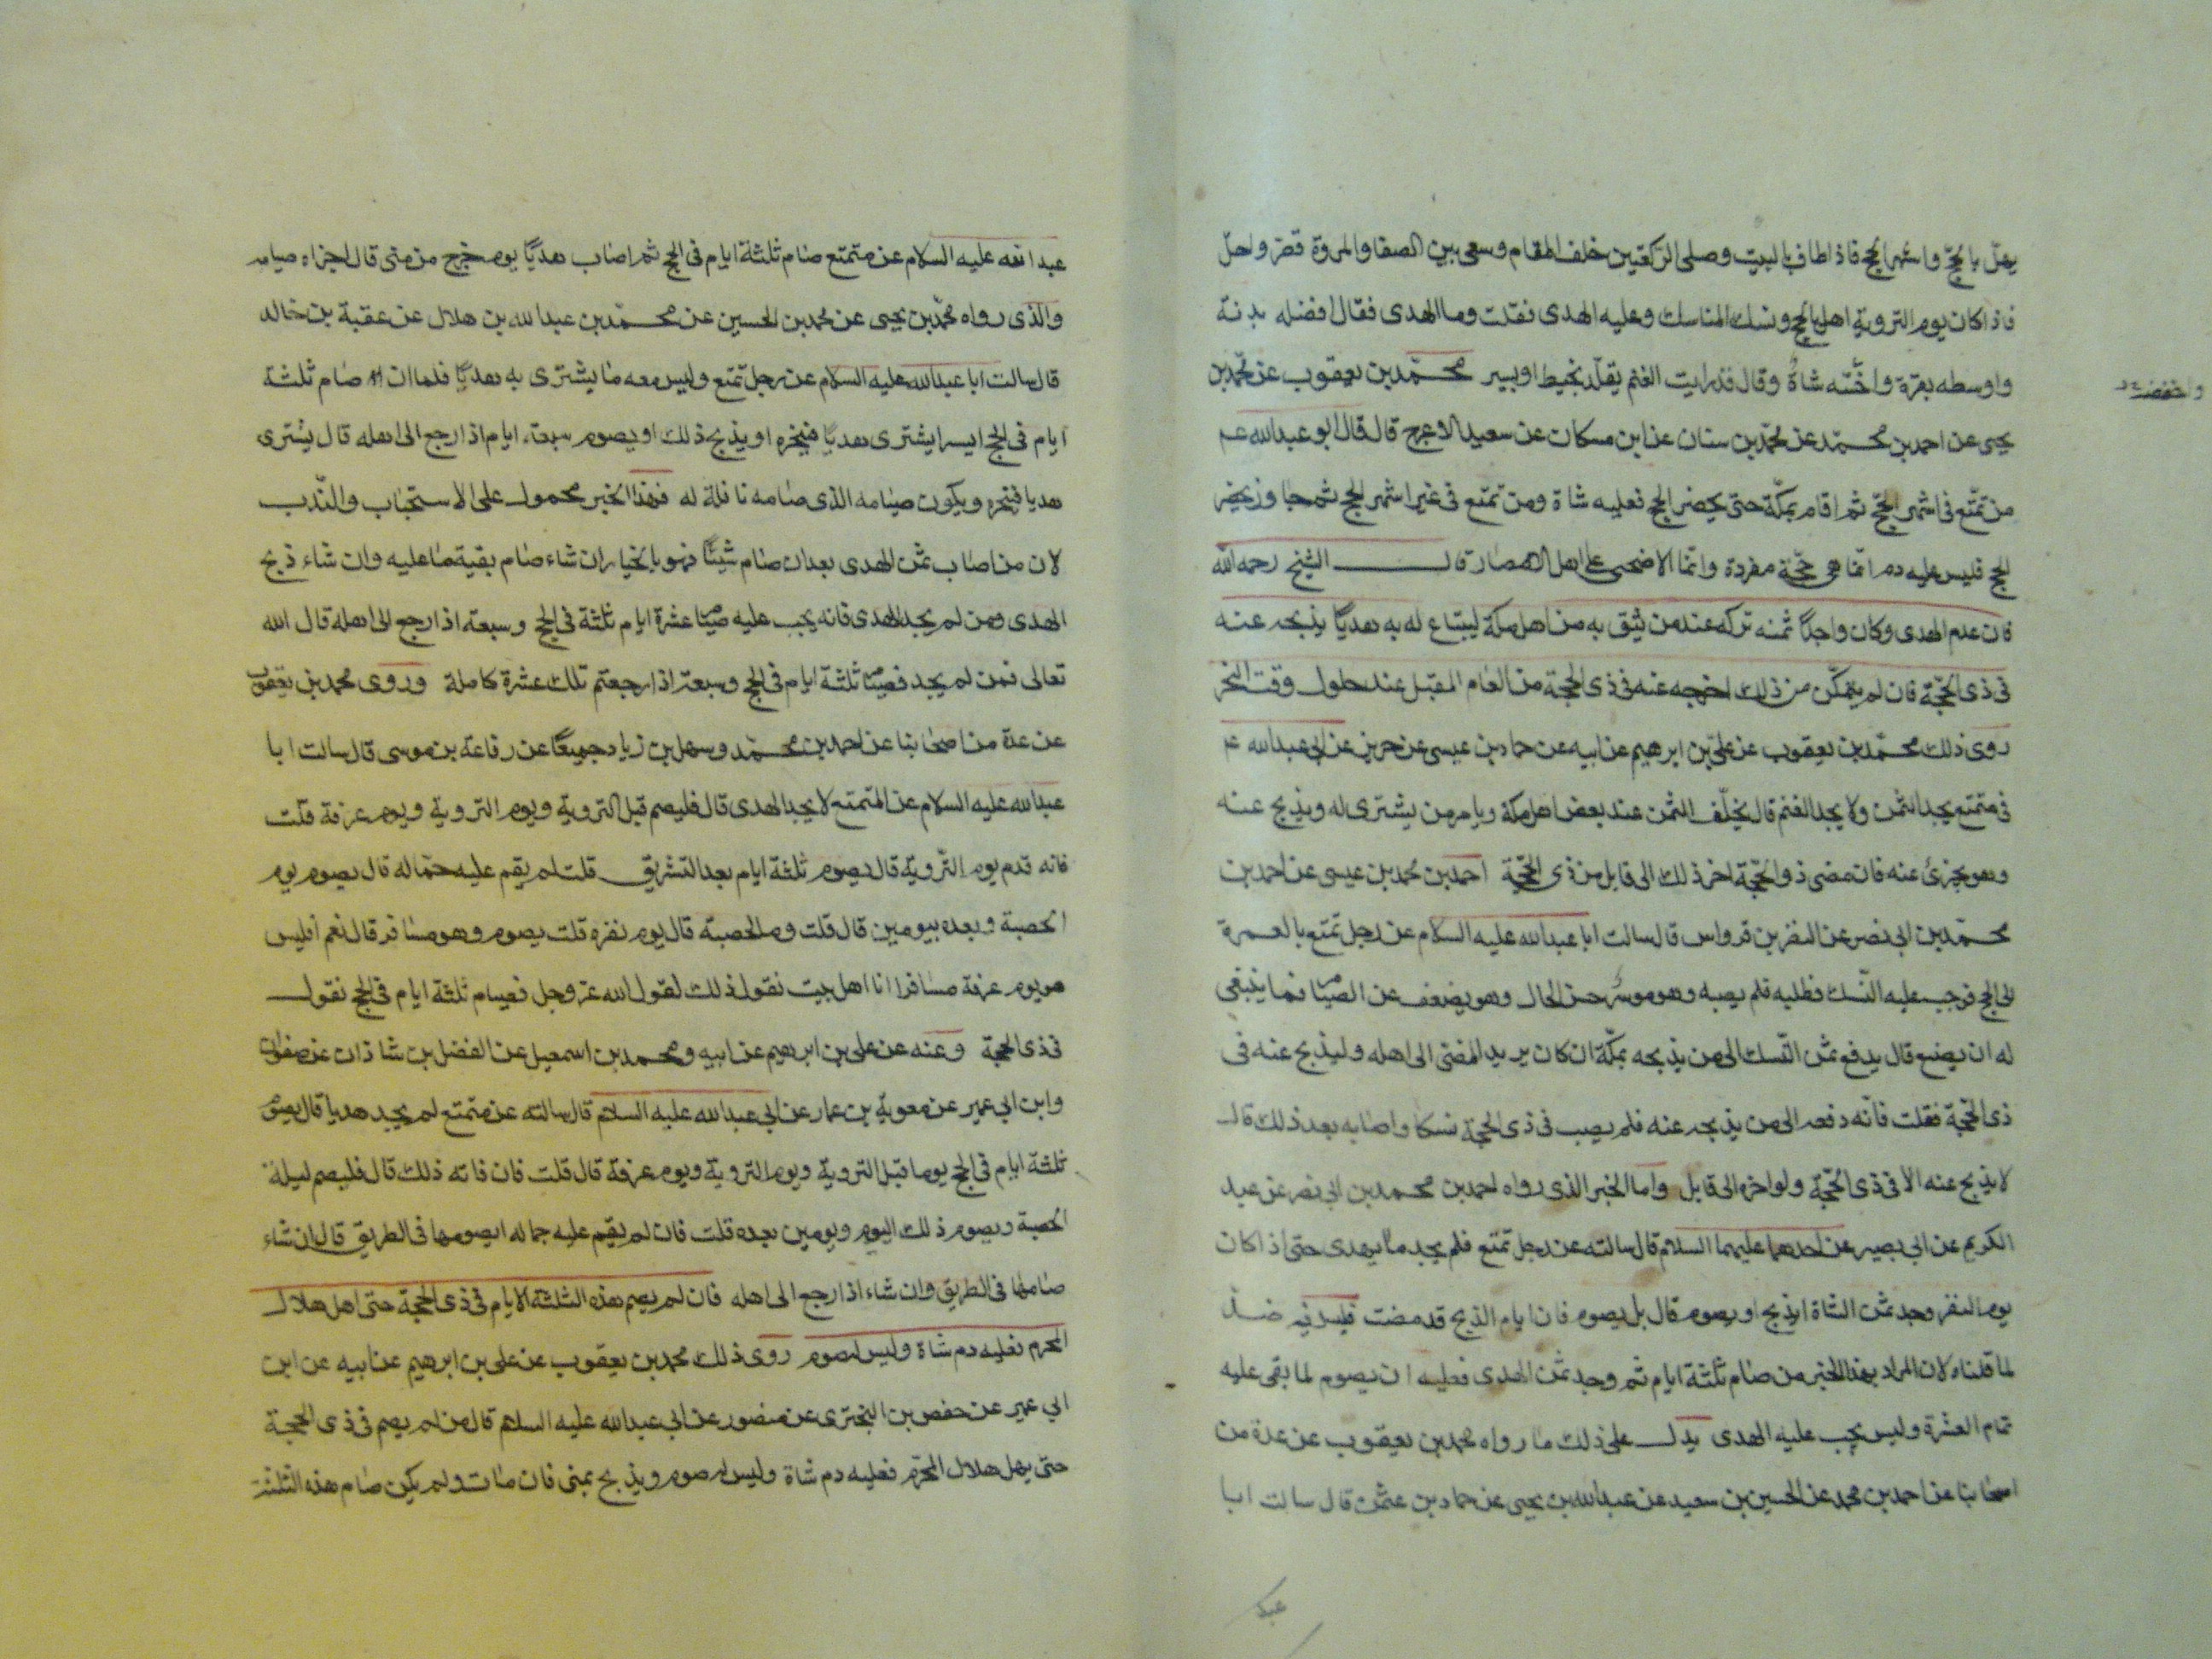 يهلّ بالحجّ واشهر الحج فاذا طاف بالبيت وصلى الركعتين خلف المقام وسعى بين الصفا والمروة قصر واحلّ
فاذا كان يوم التروية اهل بالحج ونسك المناسك وعليه الهدى فقلت وما الهدى فقال افضله بدنة
واوسطه بقرة واخسّه شاة وقال قد رايت الغنم يقلّد بخيط او بسير محمّد بن يعقوب عن محمّد بن
يحيى عن احمد بن محمّد عن محمّد بن سنان عن ابن مسكان عن سعيد الاعرج قال قال ابو عبد الله عم
من تمتّع فى اشهر الحجّ ثم اقام بمكّة حتى يحضر الحج فعليه شاة ومن تمتع فى غير اشهر الحج ثم جاوز يحضر
الحج فليس عليه دم انّما هى حجّة مفردة وانّما الاضحى على اهل الامصار قال الشيخ رحمه الله
فان عدم الهدى وكان واجدًا ثمنه تركه عند من يثق به من اهل مكة ليبتاع له به هديًا يذبحه عنه
فى ذى الحجّة فان لم يتمكّن من ذلك اخرجه عنه فى ذى الحجة من العام المقبل عند حلول وقت النحر
روى ذلك محمّد بن يعقوب عن علىّ بن ابرهيم عن ابيه عن حماد بن عيسى عن حريز عن ابى عبد الله عم
فى متمتع يجد الثمن ولا يجد الغنم قال يخلّف الثمن عند بعض اهل مكة ويامر من يشترى له ويذبح عنه
وهو يجزئ عنه فان مضى ذو الحجّة اخر ذلك الى قابل من ذى الحجّة احمد بن محمد بن عيسى عن احمد بن
محمّد بن ابى نصر عن النضر بن قرواس قال سالت ابا عبد الله عليه السلام عن رجل تمتع بالعمرة
الى الحج فوجب عليه النّسك فطلبه فلم يصبه وهو موسر حسن الحال وهو يضعف عن الصيام فما ينبغى
له ان يصنع قال يدفع ثمن النّسك الى من يذبحه بمكّة ان كان يريد المضى الى اهله وليذبح عنه فى
ذى الحجّة فقلت فانّه دفعه الى من يذبحه عنه فلم يصب فى ذى الحجة نسكا واصابه بعد ذلك قال
لا يذبح عنه الا فى ذى الحجّة ولو اخره الى قابل واما الخبر الذى رواه احمد بن محمد بن ابى نصر عن عبد
الكريم عن ابى بصير عن احدهما عليهما السلام قال سالته عن رجل تمتع فلم يجد ما يهدى حتى اذا كان
يوم النفر وجد ثمن الشاة ايذبح او يصوم قال بل يصوم فان ايام الذبح قد مضت فليس فيه ضدّ
لما قلناه لان المراد بهذا الخبر من صام ثلثة ايام ثم وجد ثمن الهدى فعليه ان يصوم لما بقى عليه
تمام العشرة وليس يجب عليه الهدى يدل على ذلك ما رواه محمد بن يعقوب عن عدة من
اصحابنا عن احمد بن محمد عن الحسين بن سعيد عن عبد الله بن يحيى عن حماد بن عثمن قال سالت ابا
عبد
عبد الله عليه السلام عن متمتع صام ثلثة ايام فى الحج ثم اصاب هديًا يوم خرج من منى قال اجزاه صيامه
والّذى رواه محمّد بن يحيى عن محمد بن الحسين عن محمّد بن عبد الله بن هلال عن عقبة بن خالد
قال سالت ابا عبد الله عليه السلام عن رجل تمتع وليس معه ما يشترى به هديًا فلما ان صام ثلثة
ايام فى الحج ايسر ايشترى هديًا فينحره او يذبح ذلك او يصوم سبعة ايام اذا رجع الى اهله قال يشترى
هديا فينحره ويكون صيامه الذى صامه نافلة له فهذا الخبر محمول على الاستحباب والنّدب
لان من اصاب ثمن الهدى بعد ان صام شيئًا فهو بالخيار ان شاء صام بقية ما عليه وان شاء ذبح
الهدى ومن لم يجد الهدى فانه يجب عليه صيام عشرة ايام ثلثة فى الحج وسبعة اذا رجع الى اهله قال الله
تعالى فمن لم يجد فصيام ثلثة ايام فى الحج وسبعة اذا رجعتم تلك عشرة كاملة وروى محمد بن يعقوب
عن عدة من اصحابنا عن احمد بن محمّد وسهل بن زياد جميعًا عن رفاعة بن موسى قال سالت ابا
عبد الله عليه السلام عن المتمتع لا يجد الهدى قال فليصم قبل التروية ويوم التروية ويوم عرفة قلت
فانه قدم يوم التّروية قال يصوم ثلثة ايام بعد التشريق قلت لم يقم عليه جمّاله قال يصوم يوم
الحصبة وبعده بيومين قال قلت وما الحصبة قال يوم نفره قلت يصوم وهو مسافر قال نعم افليس
هو يوم عرفة مسافرا انا اهل بيت نقول ذلك لقول الله عز وجل فصيام ثلثة ايام فى الحج نقول
فى ذى الحجة وعنه عن على بن ابرهيم عن ابيه ومحمد بن اسمعيل عن الفضل بن شاذان عن صفوان
وابن ابى عمير عن معوية بن عمار عن ابى عبد الله عليه السلام قال سالته عن متمتع لم يجد هديا قال يصوم
ثلثة ايام فى الحج يوما قبل التروية ويوم التروية ويوم عرفة قال قلت فان فاته ذلك قال فليصم ليلة
الحصبة ويصوم ذلك اليوم ويومين بعده قلت فان لم يقم عليه جماله ايصومها فى الطريق قال ان شاء
صامها فى الطريق وان شاء اذا رجع الى اهله فان لم يصم هذه الثلثة الايام فى ذى الحجة حتى اهل هلال
المحرم فعليه دم شاة وليس له صوم روى ذلك محمد بن يعقوب عن على بن ابرهيم عن ابيه عن ابن
ابى عمير عن حفص بن البخترى عن منصور عن ابى عبد الله عليه السلام قال من لم يصم فى ذى الحجة
حتى يهل هلال المحرّم فعليه دم شاة وليس له صوم ويذبح بمنى فان مات ولم يكن صام هذه الثلثة